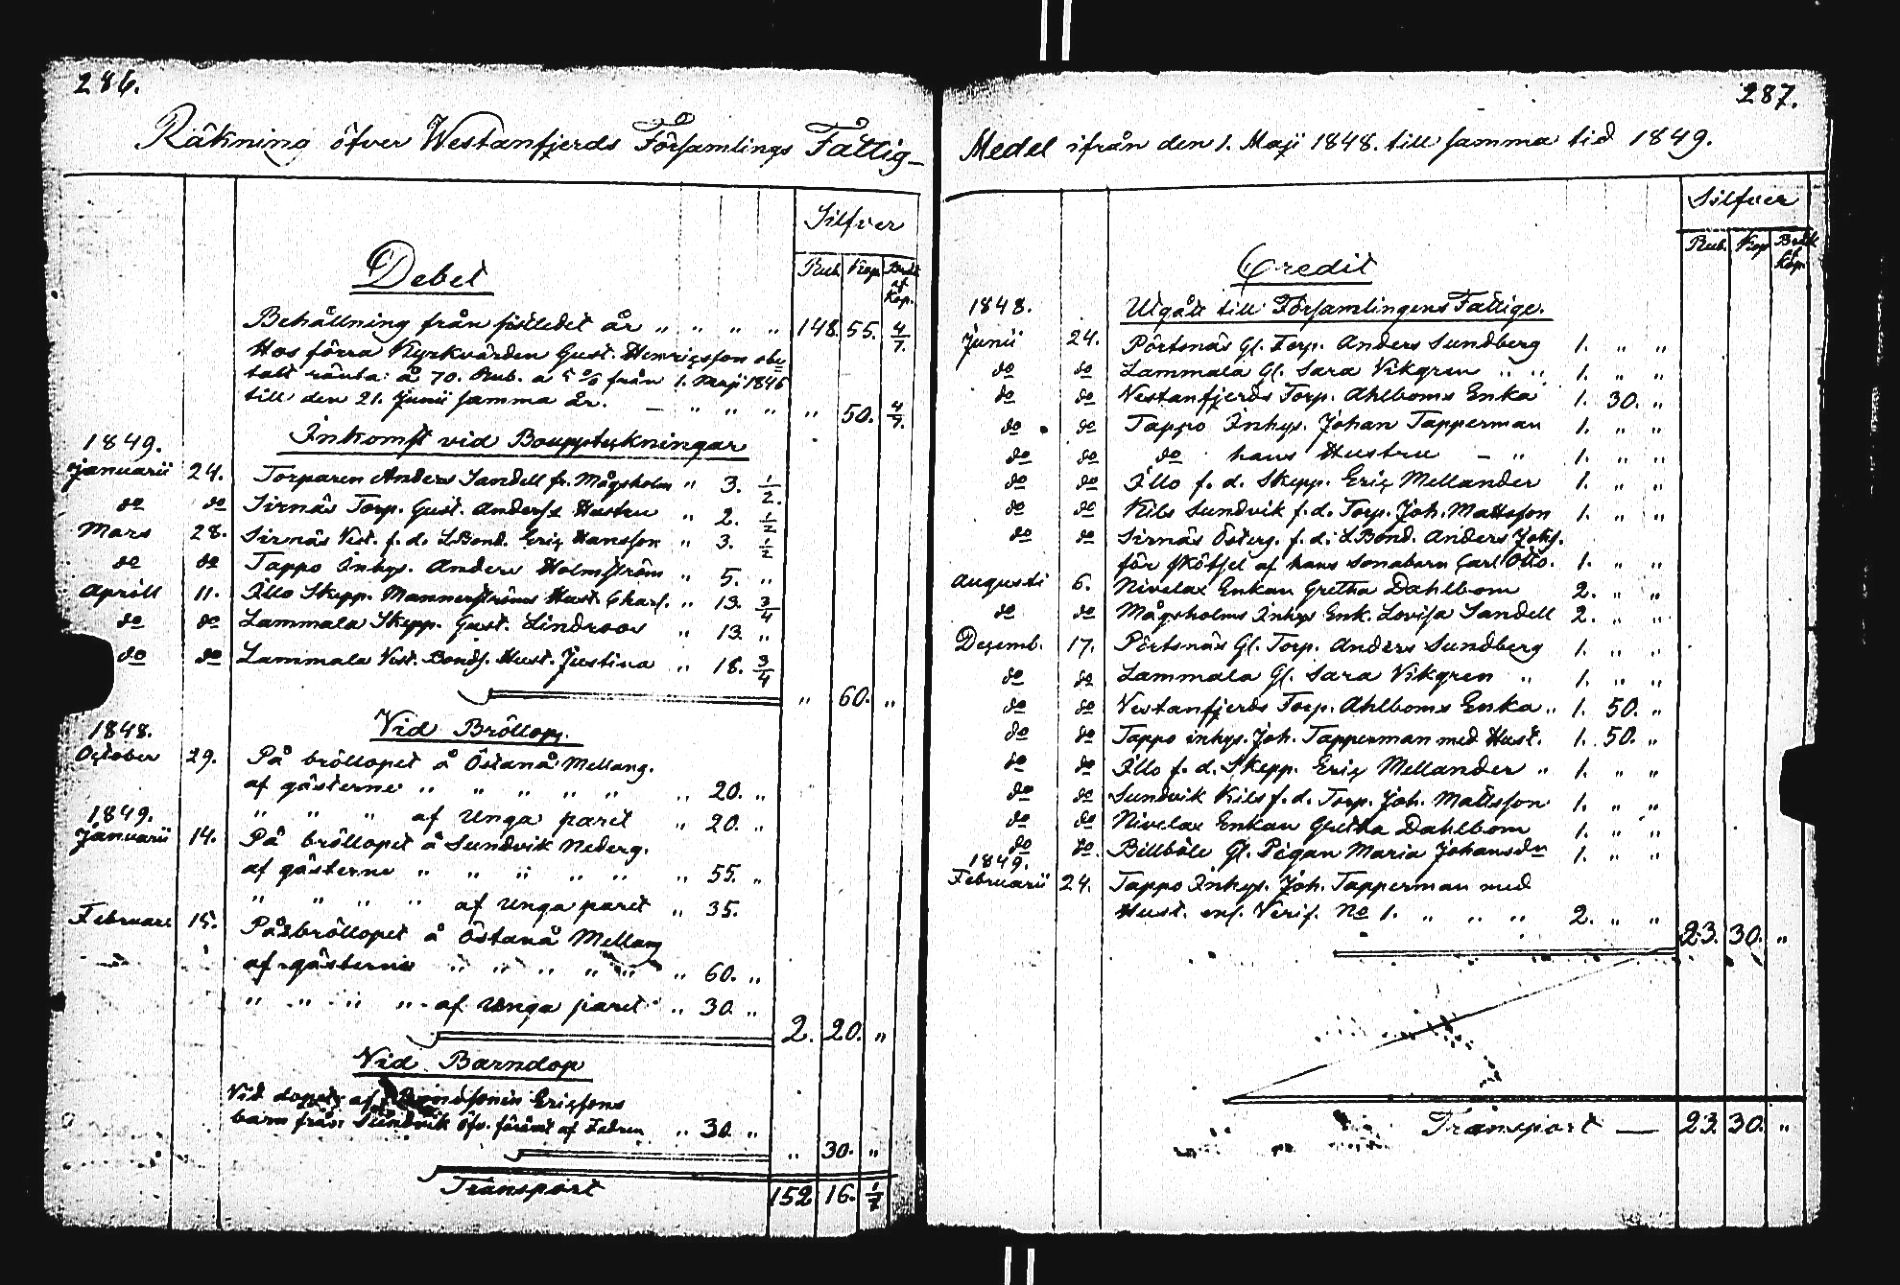 286.
Räkning öfver Westanfjerds Församlings Fattig-
Silfver
Rub. Kop. Bråk af Kop.
Debet
Behållning från sistledet år " " " " 148. 55. 4/7.
Hos förra Kyrkvärden Gust. Henricsson obe
tald ränta: å 70. Rub. a 5 % från 1. Maji 1848
till den 21. Junii samma år. — " " " " 50. 4/7.
Inkomst vid Bouppteckningar
1849.
Januarii 24. Torparen Anders Sandell fr. Mågsholm " 3. 1/2.
do do Sirnäs Torp. Gust. Anderss Hustru " 2. 1/2
Mars 28. Sirnäs Vest. f. d. L.Bond. Eric Hansson " 3. 1/2
do do Tappo Inhys. Anders Holmström " 5. "
Aprill 11. Illo Skepp. Mannerströms Hust. Charl. " 13. 3/4
do do Lammala Skepp. Gust. Lindroos " 13. "
do do Lammala Vest. Bonds. Hust. Justina " 18. 3/4
" 60. "
Vid Bröllop.
1848.
October 29. På bröllopet å Östanå Mellang.
af gästerne " " " " " " 20. "
" " " af Unga paret " 20. "
1849.
Januarii 14. På bröllopet å Sundvik Nederg.
af gästerne " " " " " " 55. "
" " " " af Unga paret " 35.
Februari 15. På bröllopet å Östanå Mellang
af gästerne " " " " " " 60. "
" " " " af Unga paret " 30. "
2. 20. "
Vid Barndop
Vid dopet af Bondsonen Ericsons
barn från Sundvik öfv. förärat af Fadren " 30. "
" 30. "
Transport 152 16. 1/7
287.
Medel ifrån den 1. Maji 1848. till samma tid 1849.
Silfver
Rub. Kop Bråk af Kop.
Credit
1848. Utgått till Församlingens Fattige.
Junii 24. Pörtsnäs Gl. Torp. Anders Sundberg 1. " "
do do Lammala Gl. Sara Vikgren " " 1. " "
do do Vestanfjerds Torp. Ahlboms Enka 1. 30. "
do do Tappo Inhys. Johan Tapperman 1. " "
do do do hans Hustru — " 1. " "
do do Illo f. d. Skepp. Eric Mellander 1. " "
do do Kils Sundvik f. d. Torp. Joh. Mattsson 1. " "
do do Sirnäs Österg. f. d. L.Bond. Anders Johs.
för skötsel af hans sonabarn Carl Otto. 1. " "
Augusti 6. Nivelax Enkan Gretha Dahlbom 2. " "
do do Mågsholms Inhys Enk. Lovisa Sandell 2. " "
Decemb. 17. Pörtsnäs Gl. Torp. Anders Sundberg 1. " "
do do Lammala Gl. Sara Vikgren " 1. " "
do do Vestanfjerds Torp. Ahlboms Enka " 1. 50. "
do do Tappo inhys. Joh. Tapperman med Hust. 1. 50. "
do do Illo f. d. Skepp. Eric Mellander " 1. " "
do do Sundvik Kils f. d. Torp. Joh. Mattsson 1. " "
do do Nivelax Enkan Gretha Dahlbom 1. " "
do do. Billböle Gl. Pigan Maria Johansdr 1. " "
1849.
Februarii 24. Tappo Inhys. Joh. Tapperman med
Hust. enl. Verif. No 1. " " " 2. " "
23. 30. "
Transport — 23. 30. "